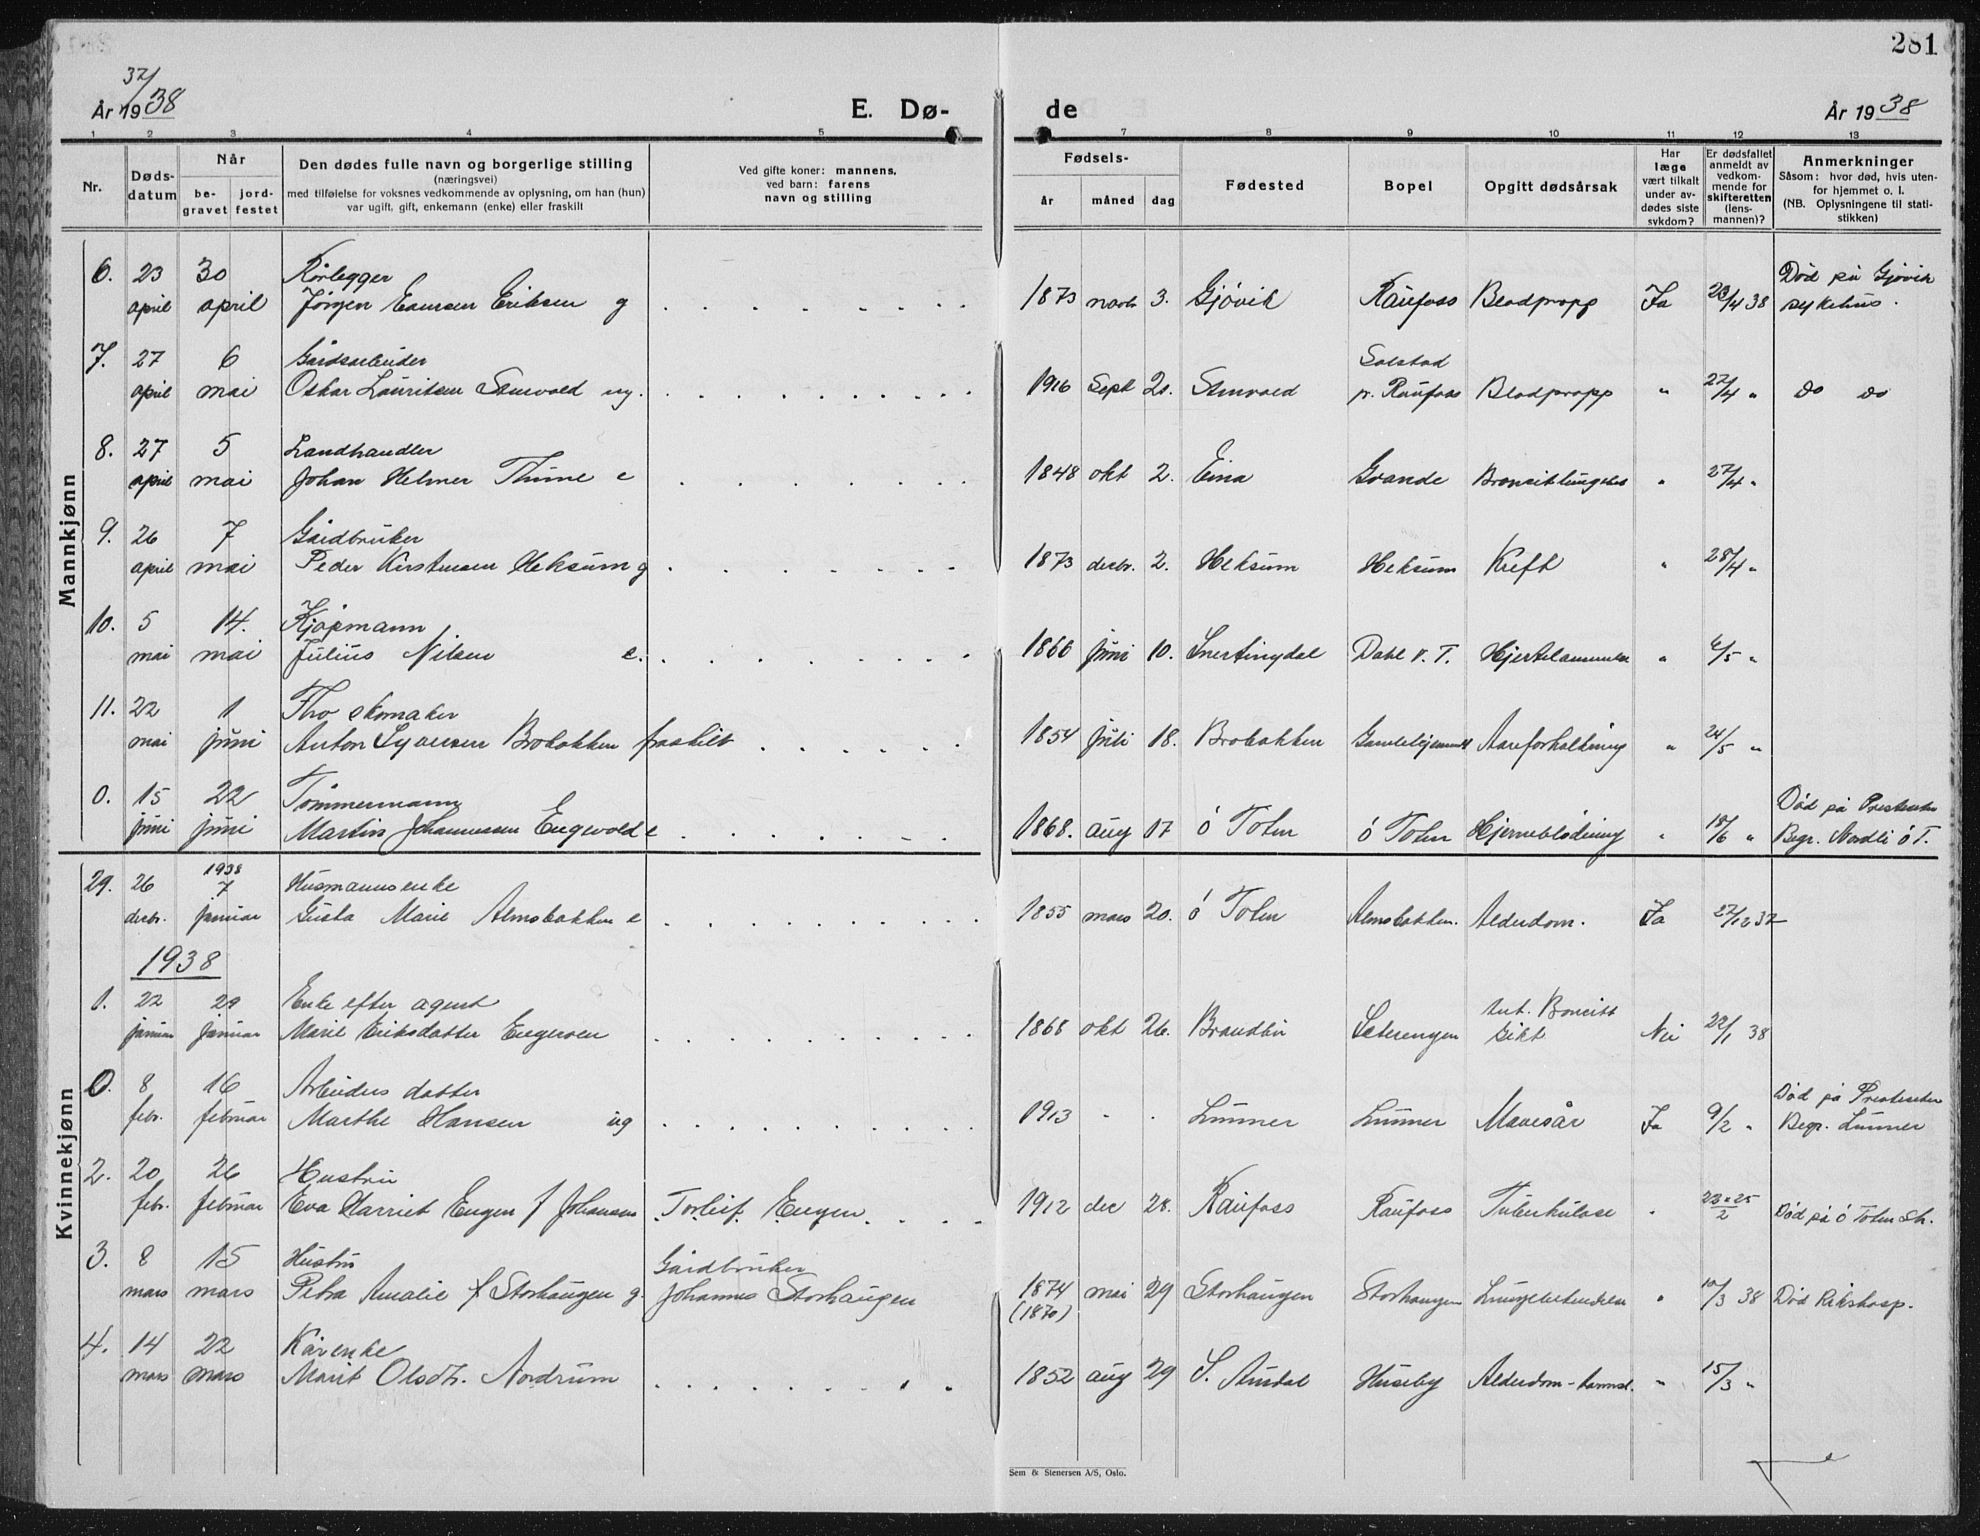 281
37/
År 1938 E. Dø- de År 1938
1 2 3 4 5 7 8 9 10 11 12 13
Nr. Døds-datum Når be-gravet jord-festet
Den dødes fulle navn og borgerlige stilling
(næringsvei)
med tilføielse for voksnes vedkommende av oplysning, om han (hun)
var ugift, gift, enkemann (enke) eller fraskilt
Ved gifte koner: mannens,
ved barn: farens
navn og stilling
Fødsels- år måned dag
Fødested
Bopel
Opgitt dødsårsak
Har læge vært tilkalt under av-dødes siste sykdom?
Er dødsfallet anmeldt av vedkom-mende for skifteretten (lens-mannen)?
Anmerkninger
Såsom: hvor død, hvis uten-
for hjemmet o. l.
(NB. Oplysningene til stati-
stikken)
Mannkjønn
6. 23 30 Rørlegger Død på Gjøvik
april april Jørgen Eriksen g 1873 3. Gjøvik Raufoss Blodpropp Ja 23/4 38 sykehus.
7. 27 6 Gårdsarbeider Solstad
april mai Oskar Lauritsen ug. 1916 Sept 21. pr. Raufoss Blodpropp " 27/4 " do do
8. 27 5 Landhandler
april mai Johan Helmer Thune e 1848 okt 2. Eina Grande " 27/4 "
9. 26 7 Gårdbruker
april mai Peder Kristensen Heksum g 1873 decbr. 2. Heksum Heksum Kreft " 28/4 "
10. 5 14. Kjøpmann
mai mai Julius Nilsen e. 1866 juni 10. Snertingdal Dahl v. T. Hjertelammelse " 6/5 "
11. 22 1 Fhv skomaker
mai juni Anton Syversen Brobakken fraskilt 1854 juli 18. Brobakken Aareforkalkning " 24/5 "
0. 15 22 Tømmermann Død på Presteseter
juni juni Martin Johannessen Engevold e 1868. aug 17 ø Toten ø Toten Hjerneblødning " 18/6 " Begr. Nordli ø T.
Kvinnekjønn
1938
29. 26 7 Husmannsenke
decbr. januar Gusta Marie Almsbakken e 1855 mars 20. ø Toten Almsbakken. Alderdom. Ja 27/12 37
1938
1. 22 29 Enke efter agent
januar januar Marie Eriksdatter Engeroen 1868 okt 26. Brandbu Seterengen Gikt Nei 22/1 38
0. 8 16 Arbeiders datter Død på Presteseter
febr. februar Marthe Hansen ug 1913 - - Lunner Lunner Mavesår Ja 9/2 " Begr. Lunner
2. 20 26 Hustru
febr. februar Eva Harriet Engen f Johansen Torleif Engen 1912 dec 28. Raufoss Raufoss Tuberkulose " 23 " 25/2 Død på ø Toten sh.
3. 8 15 Hustru Gårdbruker
mars mars Petra Amalie f Storhaugen g. Johannes Storhaugen 1874 mai 29 Storhaugen Storhaugen Lungebetendelse " 10/3 38 Død Rikshosp.
(1870)
4. 14 22 Kårenke
mars mars Marit Olsdtr. Nordrum 1852 aug 29 S. Aurdal Huseby Alderdom " 15/3 "
Sem & Stenersen A/S, Oslo.